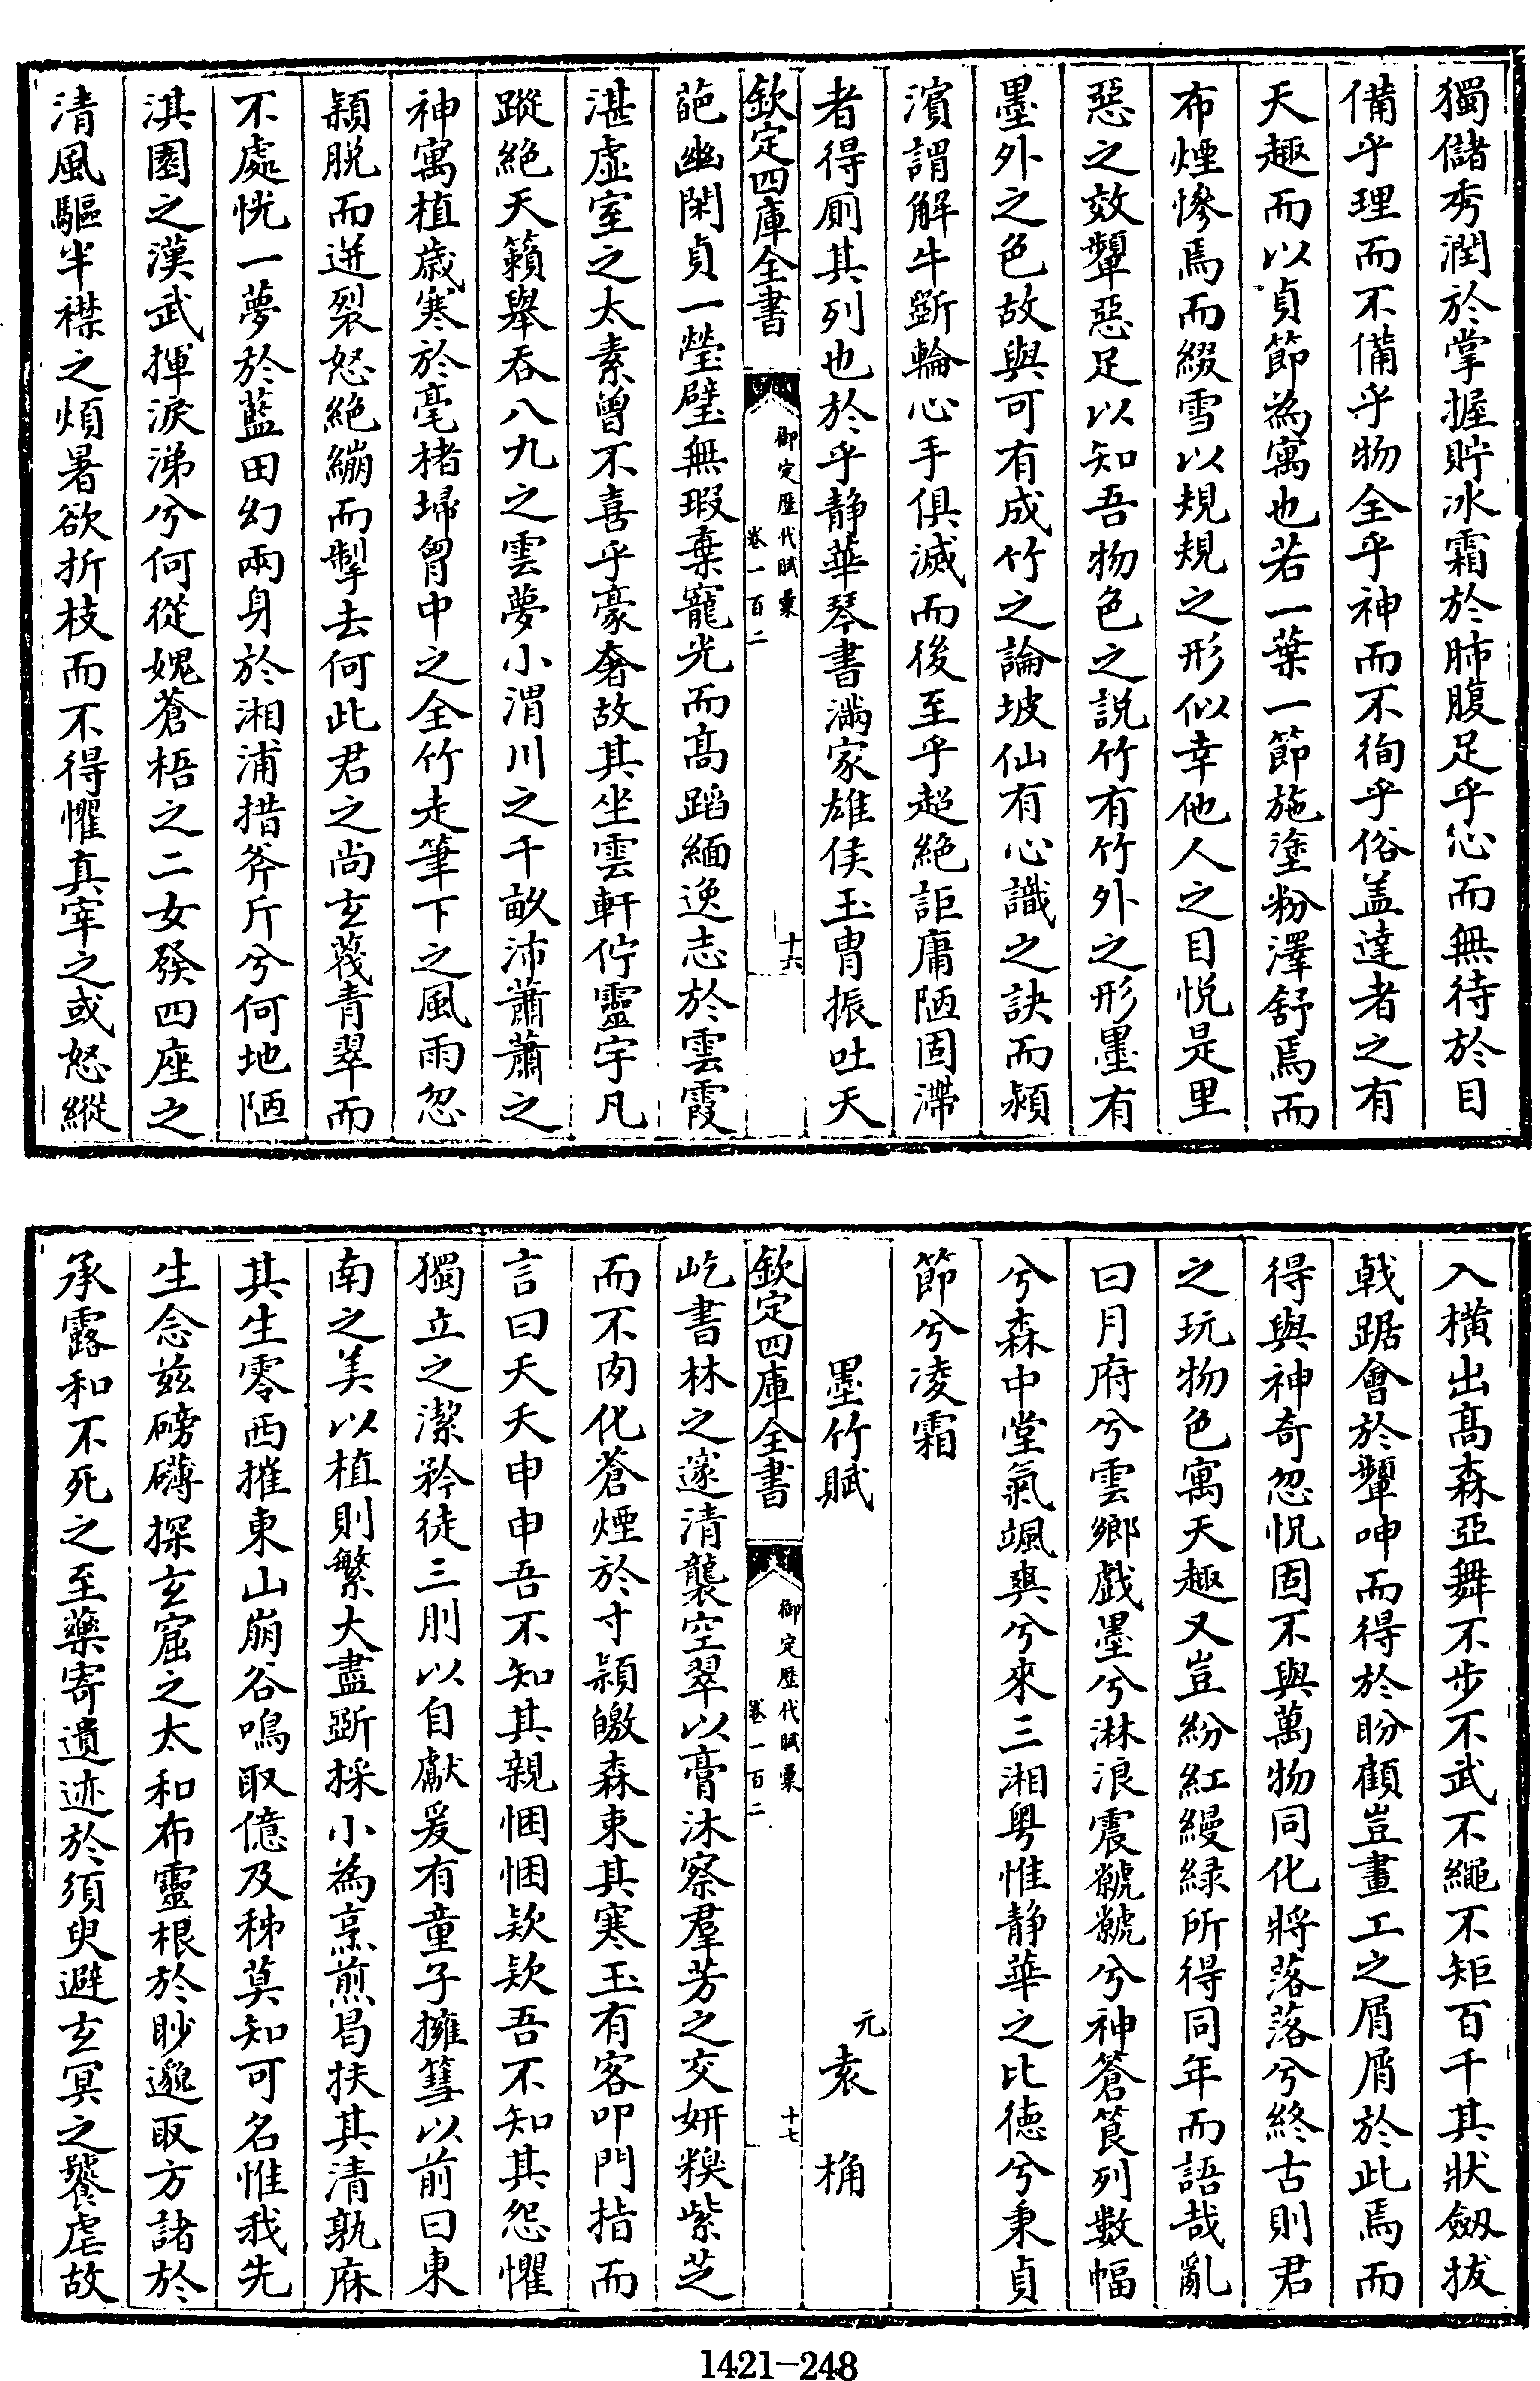 獨儲秀潤於掌握貯冰霜於肺腹足乎心而無待於目
備乎理而不備乎物全乎神而不徇乎俗盖達者之有
天趣而以貞節為寓也若一葉一節施塗粉澤舒焉而
布煙慘焉而綴雪以規規之形似幸他人之目悦是里
惡之效顰惡足以知吾物色之説竹有竹外之形墨有
墨外之色故與可有成竹之論坡仙有心識之訣而潁
濱謂解牛斲輪心手俱滅而後至乎超絶詎庸陋固滯
者得厠其列也於乎静華琴書滿家雄侯玉胄振吐天
欽定四庫全書
御定歴代賦彙
卷一百二
十六
葩幽閑貞一瑩璧無瑕棄寵光而髙蹈緬逸志於雲霞
湛虚室之太素曾不喜乎豪奢故其坐雲軒佇靈宇凡
蹤絶天籟舉吞八九之雲夢小渭川之千畝沛蕭蕭之
神寓植歳寒於毫楮埽胷中之全竹走筆下之風雨忽
穎脱而迸裂怒絶綳而掣去何此君之尚玄篾青翠而
不處恍一夢於藍田幻兩身於湘浦措斧斤兮何地陋
淇園之漢武揮淚涕兮何從媿蒼梧之二女發四座之
清風驅半襟之煩暑欲折枝而不得懼真宰之或怒縱
入横出髙森亞舞不步不武不繩不矩百千其狀劔拔
戟踞會於顰呻而得於盼顧豈畫工之屑屑於此焉而
得與神奇忽怳固不與萬物同化將落落兮終古則君
之玩物色寓天趣又豈紛紅縵緑所得同年而語哉亂
曰月府兮雲鄉戲墨兮淋浪震虩虩兮神蒼筤列數幅
兮森中堂氣颯爽兮來三湘粤惟静華之比德兮秉貞
節兮凌霜
墨竹賦
元 袁桷
欽定四庫全書
御定歴代賦彙
卷一百二
十七
屹書林之邃清襲空翠以膏沐察羣芳之交妍糗紫芝
而不肉化蒼煙於寸穎皦森束其寒玉有客叩門指而
言曰夭夭申申吾不知其親悃悃欵欵吾不知其怨懼
獨立之潔矜徒三刖以自獻爰有童子擁篲以前曰東
南之美以植則繁大盡斲採小為烹煎曷扶其清孰庥
其生零西摧東山崩谷鳴取億及秭莫知可名惟我先
生念兹磅礴探玄窟之太和布靈根於眇邈取方諸於
承露和不死之至藥寄遺迹於須臾避玄冥之饕虐故
1421-248